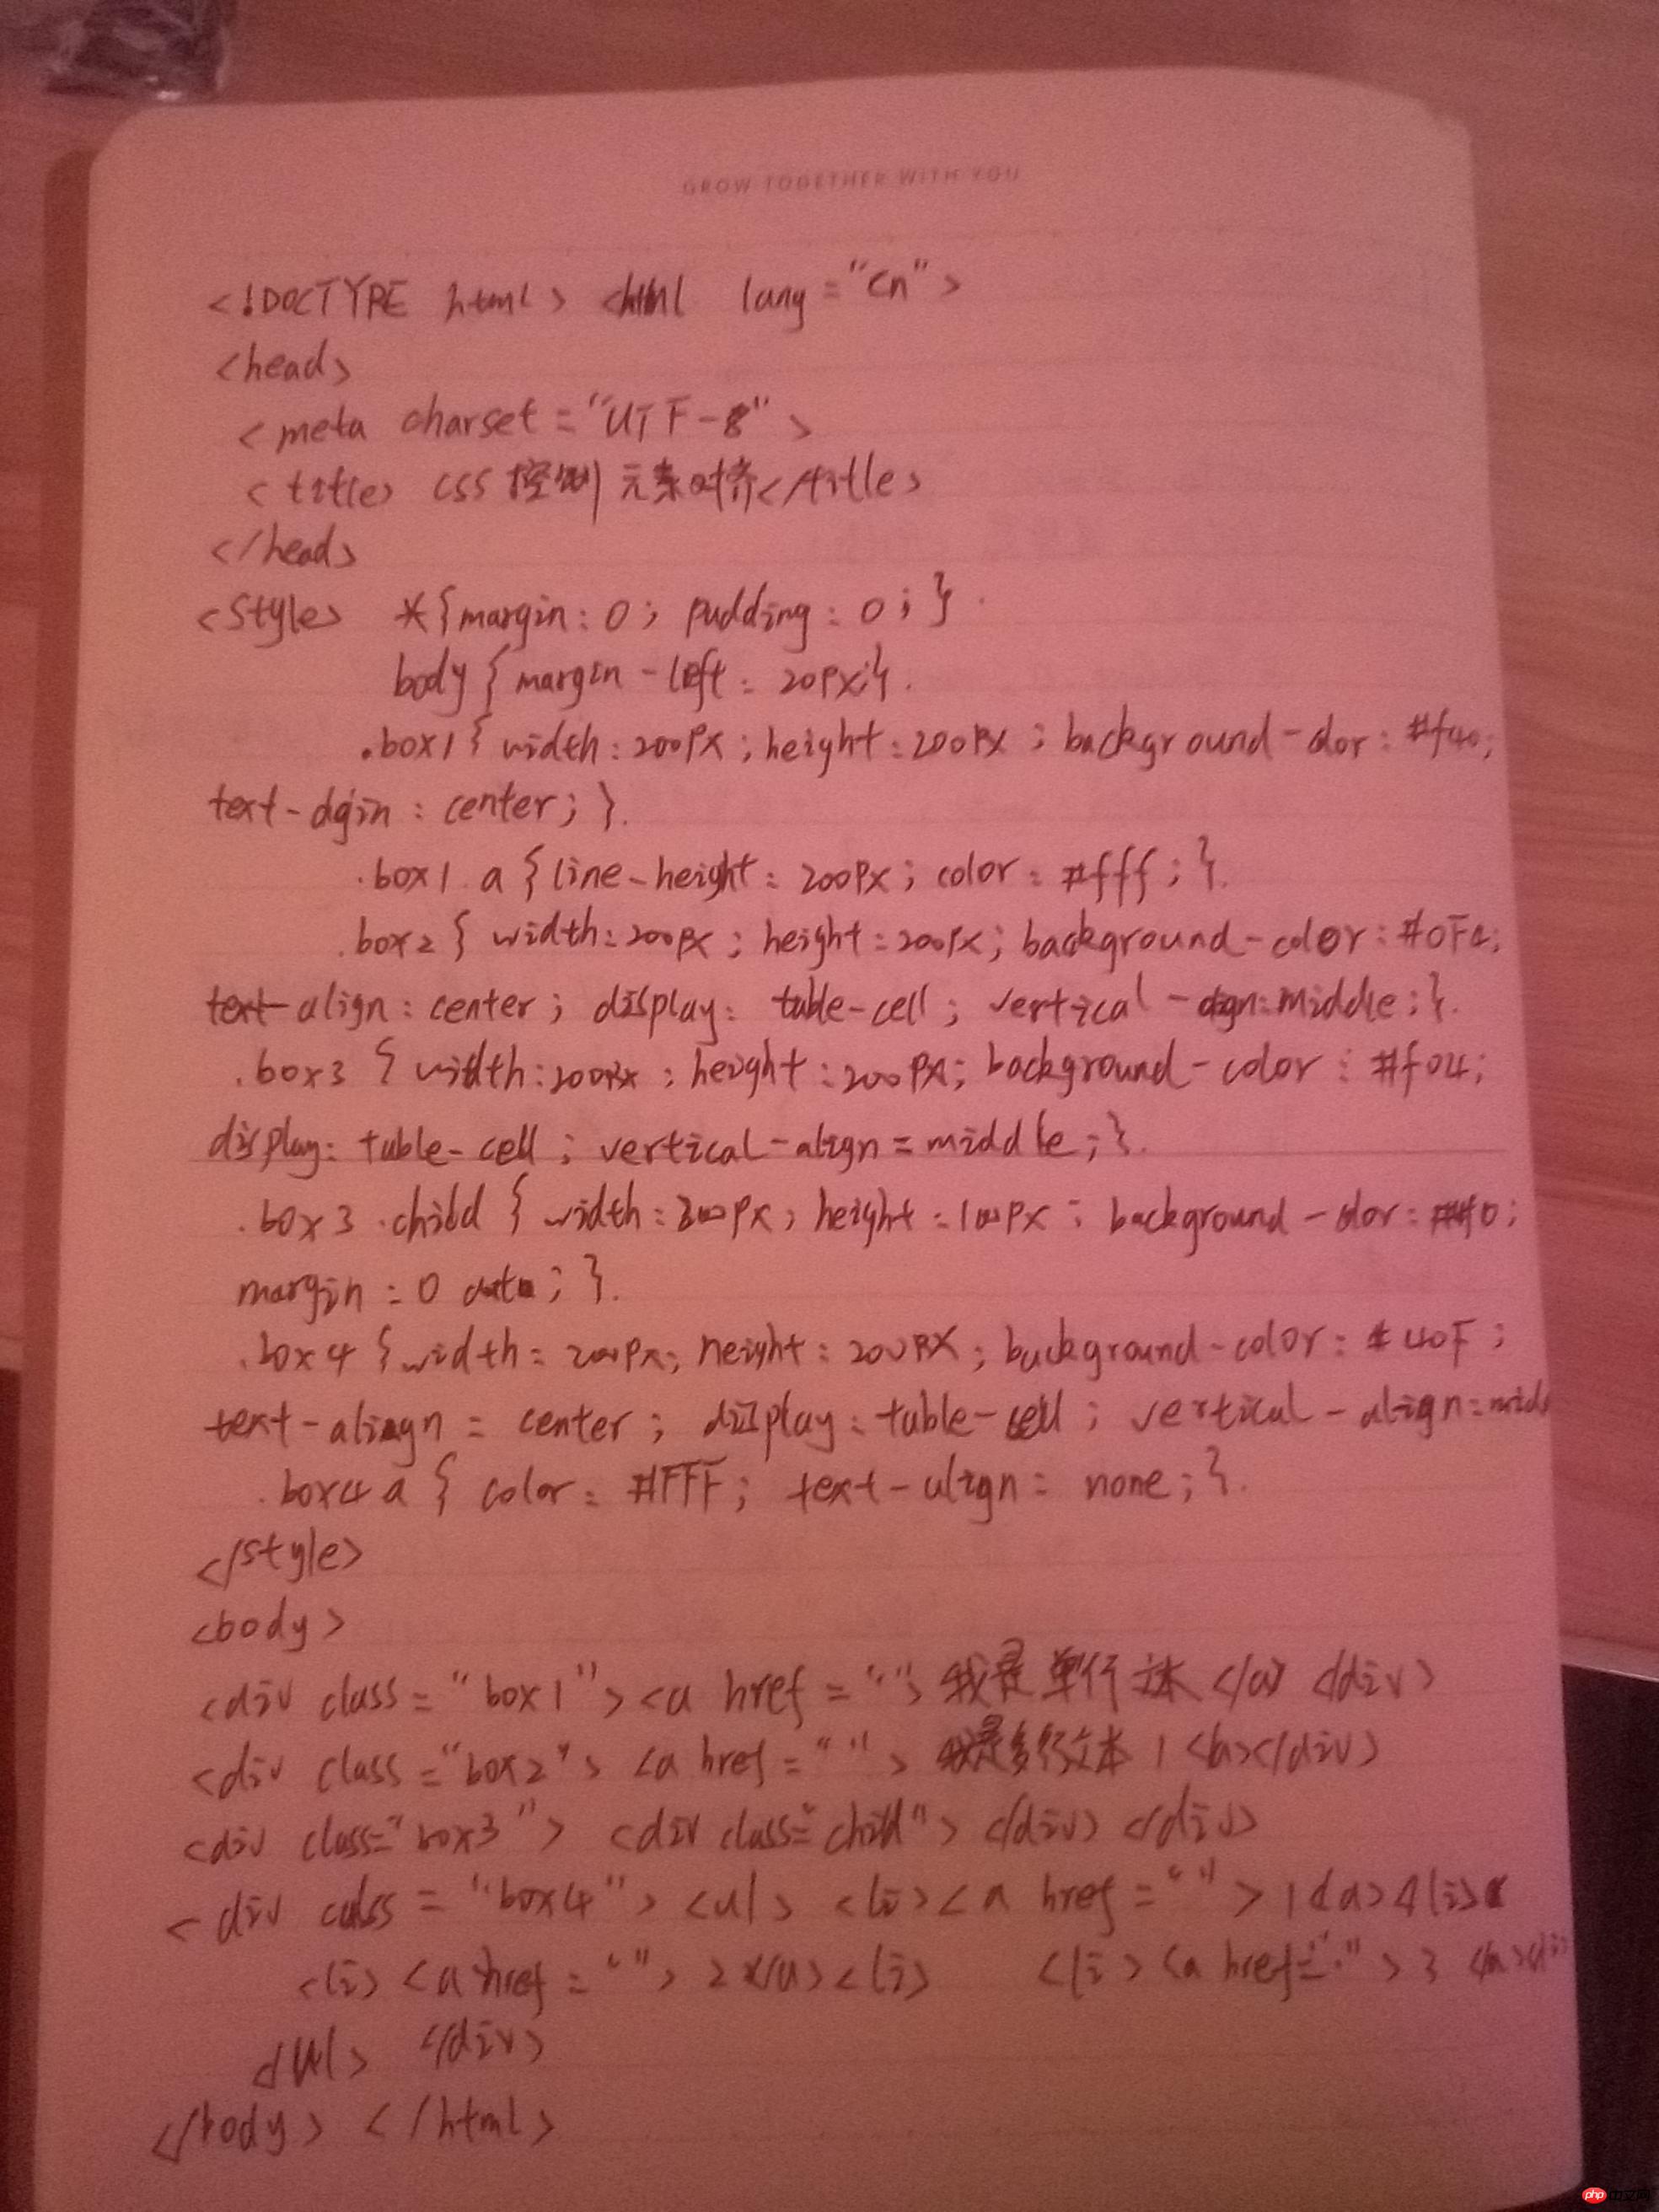 GROW TOGETHER WITH YOU
<!DOCTYPE html> <html lang="cn">
<head>
<meta charset="UTF-8">
<title> CSS 控制元素对齐</title>
</head>
<style> *{margin: 0; padding: 0;}
body {margin-left: 20px;}
.box1 { width: 200px; height: 200px; background-color: #f40;
text-algin: center; }
.box1 a {line-height: 200px; color: #fff; }
.box2 { width: 200px; height: 200px; background-color: #0F4;
text-align: center; display: table-cell; vertical-align: middle; }
.box3 { width: 200px; height: 200px; background-color: #f04;
display: table-cell; vertical-align: middle; }
.box3 .child { width: 200px; height: 100px; background-color:
margin: 0 auto; }
.box4 { width: 200px; height: 200px; background-color: #40F;
text-align: center; display: table-cell; vertical-align:
.box4 a { color: #FFF; text-align: none; }
</style>
<body>
<div class="box1"><a href=""> 我是单行文本 </a> </div>
<div class="box2"> <a href=""> 我是多行文本 1 </a></div>
<div class="box3"> <div class="child"> </div> </div>
<div class="box4"> <ul> <li> <a href=""> 1 </a> </li>
<li> <a href=""> 2 </a> <li> <li> <a href=""> 3 </a>
</ul> </div>
</body> </html>
php 中文网